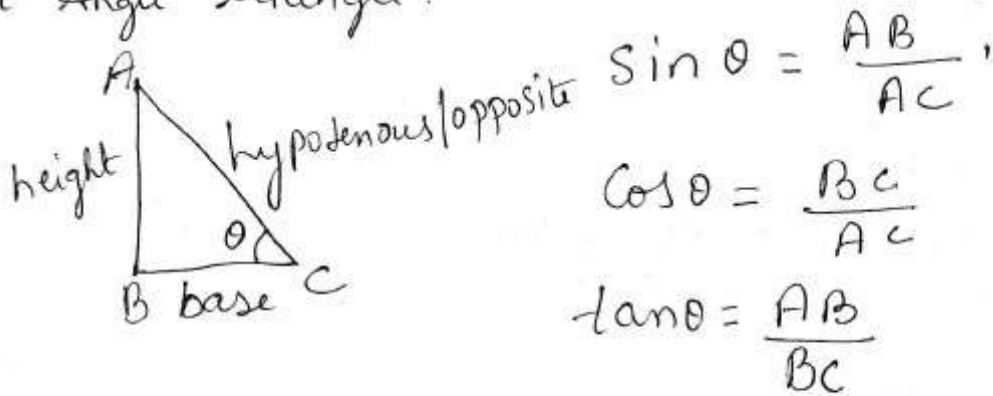 Angle
A
height
hypotenous/opposite
θ
B base C
Sin θ = AB/AC,
Cosθ = BC/AC
tanθ = AB/BC